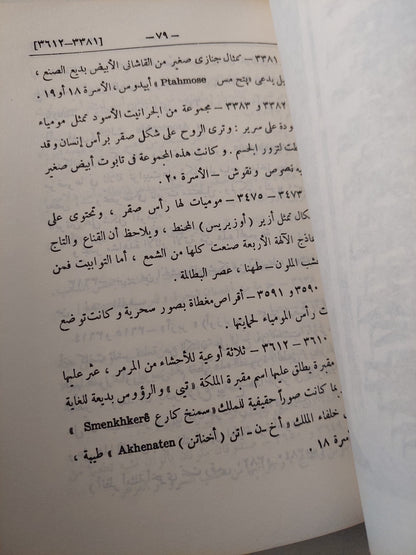 [٣٣٨١–٣٦١٢] –٧٩–
٣٣٨١ – تمثال جنازى صغير من القاشانى الأبيض بديع الصنع ،
يدعى « پتح مس Ptahmose » أبيدوس ، الأسرة ١٨ أو ١٩ .
و ٣٣٨٣ – مجموعة من الجرانيت الأسود تمثل مومياء
على سرير : وترى الروح على شكل صقر برأس إنسان وقد
لتزور الجسم . وكانت هذه المجموعة فى تابوت أبيض صغير
نصوص ونقوش – الأسرة ٢٠ .
٣٤٧٣ – ٣٤٧٥ – موميات لها رأس صقر ، وتحتوى على
تمثل أزير (أوزيريس) المحنط ، ويلاحظ أن القناع والتاج
الآلهة الأربعة صنعت كلها من الشمع ، أما التوابيت فمن
الملون – طهنا ، عصر البطالمة .
٣٥٩٠ و ٣٥٩١ – أقراص مغطاة بصور سحرية وكانت توضع
رأس المومياء لحمايتها .
٣٦١٠ – ٣٦١٢ – ثلاثة أوعية للأحشاء من المرمر ، عثر عليها
مقبرة يطلق عليها اسم مقبرة الملكة «تيى» والرؤوس بديعة للغاية
كانت صوراً حقيقية للملك «سمنخ كارع Smenkhkerê »
خلفاء الملك « أخ–ن– اتن (أخناتن) Akhenaten » طيبة ،
١٨ .